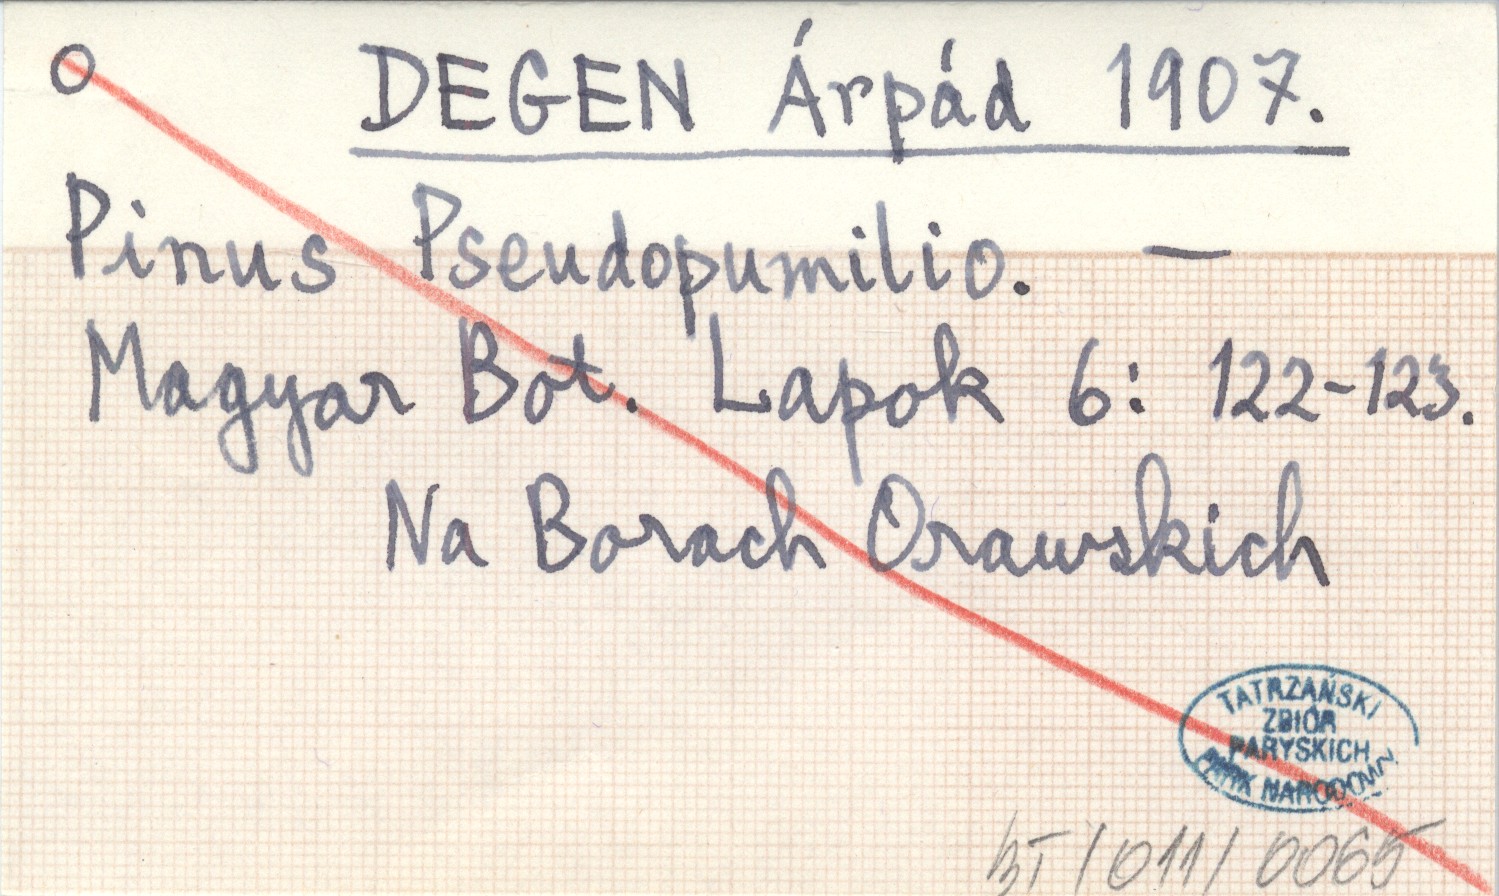 O DEGEN Árpád 1907.
Pinus Pseudopumilio. —
Magyar Bot. Lapok 6: 122-123.
Na Borach Orawskich
TATRZAŃSKI
ZBIÓR
PARYSKICH
PARK NARODOWY
BT/011/0065